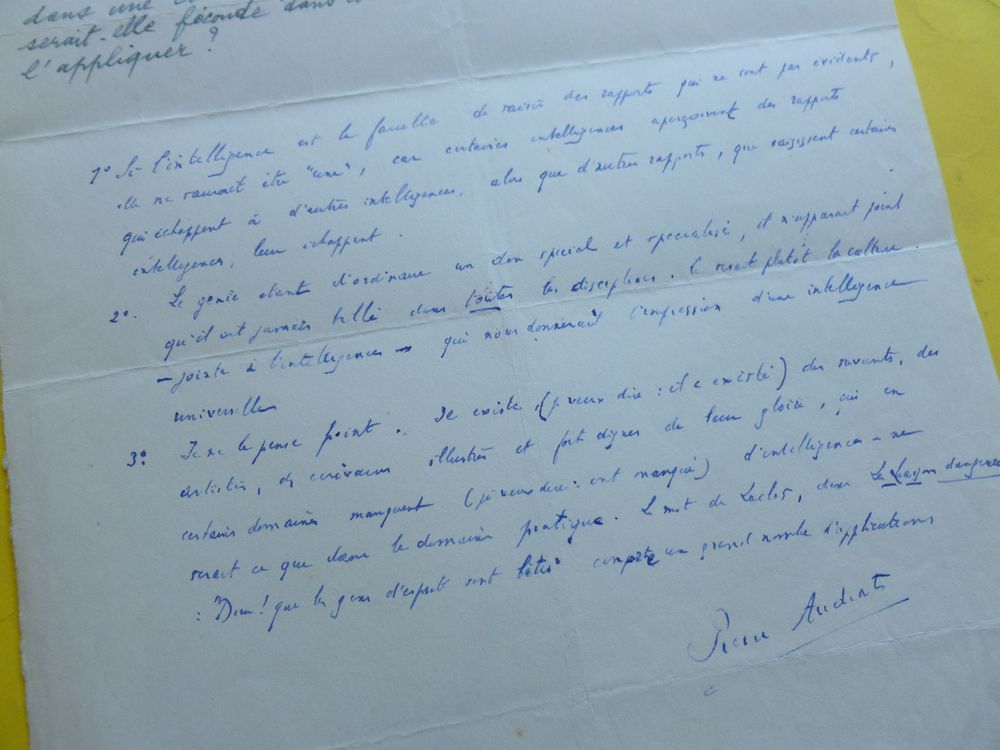 dans une
serait-elle féconde dans
l'appliquer ?
1° Si l'intelligence est la faculté de saisir des rapports qui ne sont pas évidents,
elle ne saurait être "une", car certaines intelligences aperçoivent des rapports
qui échappent à d'autres intelligences, alors que d'autres rapports, que saisissent certaines
intelligences, leur échappent.
2°. Le génie étant d'ordinaire un don spécial et spécialisé, il n'apparaît point
qu'il ait jamais brillé dans toutes les disciplines. Ce serait plutôt la culture.
– jointe à l'intelligence – qui nous donnerait l'impression d'une intelligence
universelle
3° Je ne le pense point. Il existe (je veux dire : il a existé) des savants, des
artistes, des écrivains illustres et fort dignes de leur gloire, qui en
certains domaines manquent (je veux dire : ont manqué) d'intelligence – ne
serait ce que dans le domaine pratique. Le mot de Laclos, dans Les Liaisons dangereuses
: "Dieu ! que les gens d'esprit sont bêtes" compte un grand nombre d'applications
Pierre Audiat